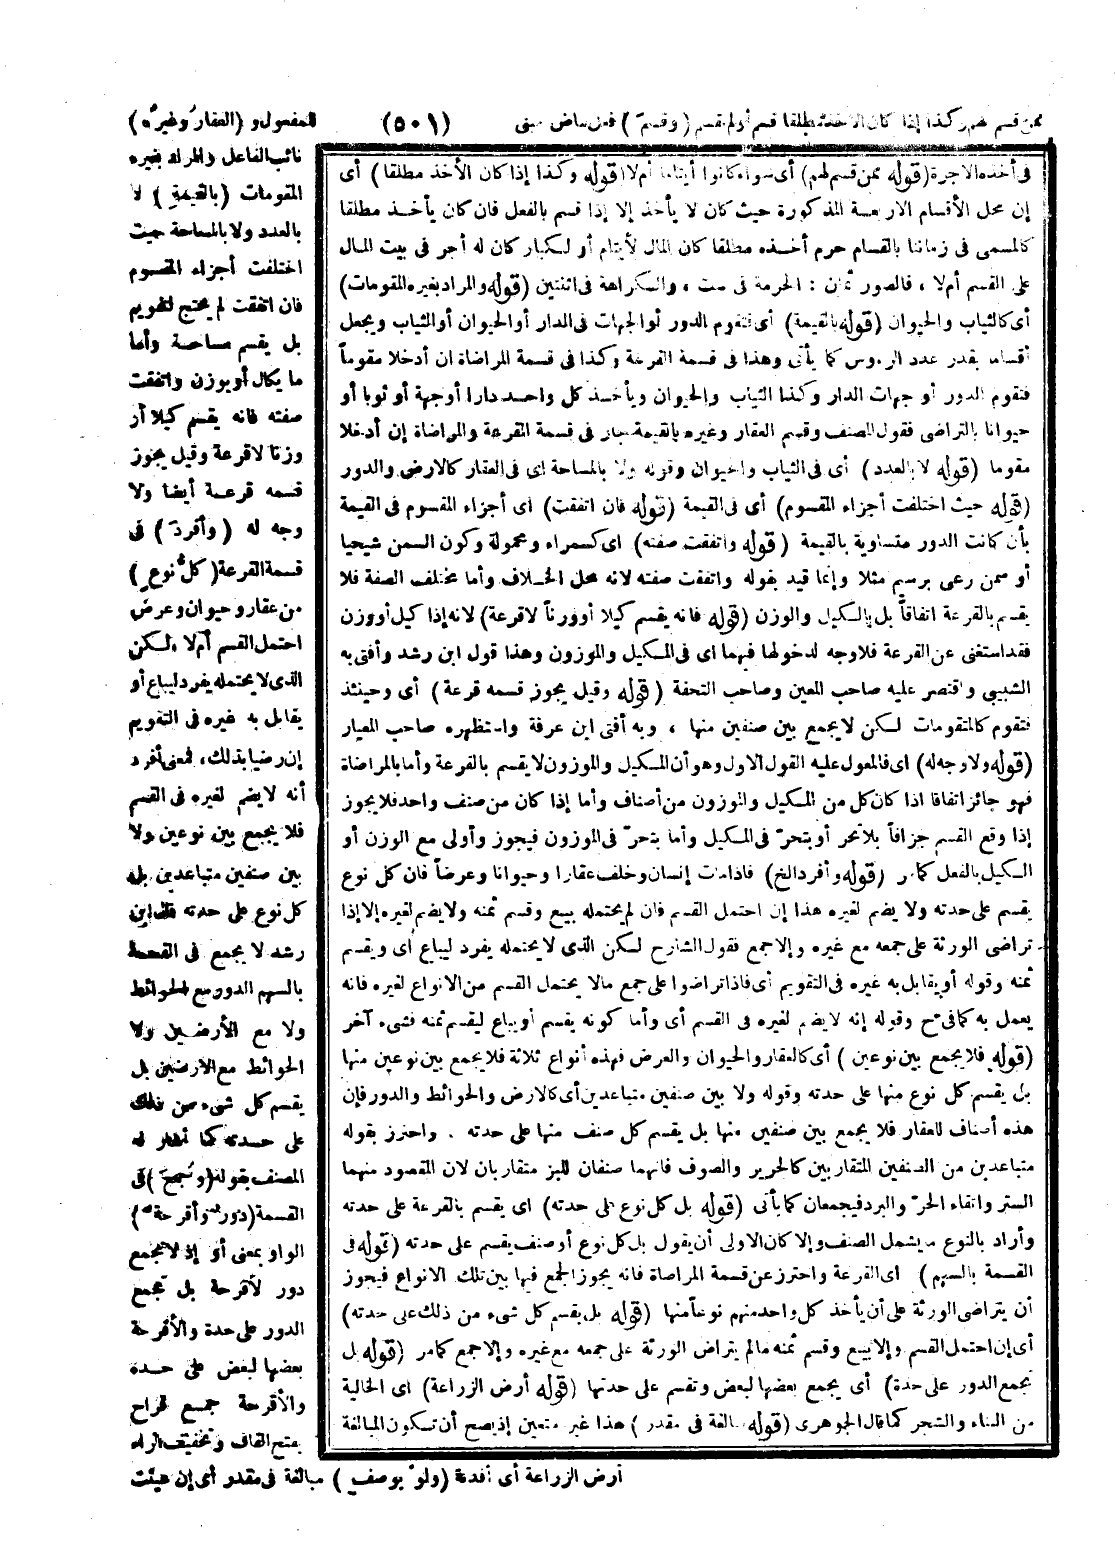 ممن قسم لهم وكذا إذا كان الأخذ مطلقا قسم أو لم يقسم (وقسم) فعل ماض مبنى (٥٠١) للمفعول و (العقار وغيره)
نائب الفاعل والمراد بغيره
المقومات (بالقيمة) لا
بالعدد ولا بالمساحة حيث
اختلفت أجزاء المقسوم
فان اتفقت لم يحتج لتقويم
بل يقسم مساحة وأما
ما يكال أو يوزن واتفقت
صفته فانه يقسم كيلا أو
وزنا لا قرعة وقيل يجوز
قسمه قرعة أيضا ولا
وجه له (وأفرد) فى
قسمة القرعة (كل نوع)
من عقار وحيوان وعرض
احتمل القسم أم لا ، لكن
الذى لا يحتمله يفرد ليباع أو
يقابل به غيره فى التقويم
إن رضيا بذلك ، فمعنى أفرد
أنه لا يضم لغيره فى القسم
فلا يجمع بين نوعين ولا
بين صنفين متباعدين بل
كل نوع على حدته قال ابن
رشد لا يجمع فى القسمة
بالسهم الدور مع الحوائط
ولا مع الأرضين ولا
الحوائط مع الارضين بل
يقسم كل شىء من ذلك
على حدته كما أشار له
المصنف بقوله (وجمع) فى
القسمة (دور وأقرحة)
الواو بمعنى أو إذ لا يجمع
دور لأقرحة بل تجمع
الدور على حدة والأقرحة
بعضها لبعض على حدة
والأقرحة جمع قراح
بفتح القاف وتخفيف الراء
أرض الزراعة أى أفدنة (ولو بوصف) مبالغة فى مقدر أى إن عينت
فى أخذه الاجرة (قوله ممن قسم لهم) أى سواء كانوا أيتاما أم لا (قوله وكذا إذا كان الأخذ مطلقا) أى
إن محل الأقسام الاربعة المذكورة حيث كان لا يأخذ إلا إذا قسم بالفعل فان كان يأخذ مطلقا
كالمسمى فى زماننا بالقسام حرم أخذه مطلقا كان المال لأيتام أو لكبار كان له أجر فى بيت المال
على القسم أم لا ، فالصور ثمان : الحرمة فى ست ، والكراهة فى اثنتين (قوله والمراد بغيره المقومات)
أى كالثياب والحيوان (قوله بالقيمة) أى فتقوم الدور أو الجهات فى الدار أو الحيوان أو الثياب ويجعل
أقساما بقدر عدد الرءوس كما يأتى وهذا فى قسمة القرعة وكذا فى قسمة المراضاة ان أدخلا مقوماً
فتقوم الدور أو جهات الدار وكذا الثياب والحيوان ويأخذ كل واحد دارا أو جهة أو ثوبا أو
حيوانا بالتراضى فقول المصنف وقسم العقار وغيره بالقيمة جار فى قسمة القرعة والمراضاة إن أدخلا
مقوما (قوله لا بالعدد) أى فى الثياب والحيوان وقوله ولا بالمساحة اى فى العقار كالارض والدور
(قوله حيث اختلفت أجزاء المقسوم) أى فى القيمة (قوله فان اتفقت) اى أجزاء المقسوم فى القيمة
بأن كانت الدور متساوية بالقيمة (قوله واتفقت صفته) اى كسمراء ومحمولة وكون السمن شيحيا
أو سمن رعى برسيم مثلا وإنما قيد بقوله واتفقت صفته لانه محل الخلاف وأما مختلف الصفة فلا
يقسم بالقرعة اتفاقاً بل بالكيل والوزن (قوله فانه يقسم كيلا أو وزناً لا قرعة) لانه إذا كيل أو وزن
فقد استغنى عن القرعة فلا وجه لدخولها فيهما اى فى المكيل والموزون وهذا قول ابن رشد وأفتى به
الشبيبى واقتصر عليه صاحب المعين وصاحب التحفة (قوله وقيل يجوز قسمه قرعة) أى وحينئذ
فتقوم كالمتقومات لكن لا يجمع بين صنفين منها ، وبه أفتى ابن عرفة واستظهره صاحب المعيار
(قوله ولا وجه له) اى فالمعول عليه القول الاول وهو أن المكيل والموزون لا يقسم بالقرعة وأما بالمراضاة
فهو جائز اتفاقا اذا كان كل من المكيل والموزون من أصناف وأما إذا كان من صنف واحد فلا يجوز
إذا وقع القسم جزافاً بلا تحر أو بتحرّ فى المكيل وأما بتحرّ فى الموزون فيجوز وأولى مع الوزن أو
الكيل بالفعل كما مر (قوله وأفرد الخ) فاذا مات إنسان وخلف عقارا وحيوانا وعرضاً فان كل نوع
يقسم على حدته ولا يضم لغيره هذا إن احتمل القسم فان لم يحتمله بيع وقسم ثمنه ولا يضم لغيره إلا إذا
تراضى الورثة على جمعه مع غيره وإلا جمع فقول الشارح لكن الذى لا يحتمله يفرد ليباع أى ويقسم
ثمنه وقوله أو يقابل به غيره فى التقويم أى فاذا تراضوا على جمع مالا يحتمل القسم من الانواع لغيره فانه
يعمل به كما فى ح وقوله إنه لا يضم لغيره فى القسم أى وأما كونه يقسم أو يباع ليقسم ثمنه فشىء آخر
(قوله فلا يجمع بين نوعين) أى كالعقار والحيوان والعرض فهذه أنواع ثلاثة فلا يجمع بين نوعين منها
بل يقسم كل نوع منها على حدته وقوله ولا بين صنفين متباعدين أى كالارض والحوائط والدور فإن
هذه أصناف للعقار فلا يجمع بين صنفين منها بل يقسم كل صنف منها على حدته . واحترز بقوله
متباعدين من الصنفين المتقاربين كالحرير والصوف فانهما صنفان للبز متقاربان لان المقصود منهما
الستر واتقاء الحرّ والبرد فيجمعان كما يأتى (قوله بل كل نوع على حدته) اى يقسم بالقرعة على حدته
وأراد بالنوع ما يشمل الصنف وإلا كان الاولى أن يقول بل كل نوع أو صنف يقسم على حدته (قوله فى
القسمة بالسهم) اى القرعة واحترز عن قسمة المراضاة فانه يجوز الجمع فيها بين تلك الانواع فيجوز
أن يتراضى الورثة على أن يأخذ كل واحد منهم نوعاً منها (قوله بل يقسم كل شىء من ذلك على حدته)
أى إن احتمل القسم وإلا بيع وقسم ثمنه مالم يتراض الورثة على جمعه مع غيره وإلا جمع كما مر (قوله بل
تجمع الدور على حدة) أى يجمع بعضها لبعض وتقسم على حدتها (قوله أرض الزراعة) اى الخالية
من البناء والشجر كما قال الجوهرى (قوله مبالغة فى مقدر) هذا غير متعين إذ يصح أن تكون المبالغة